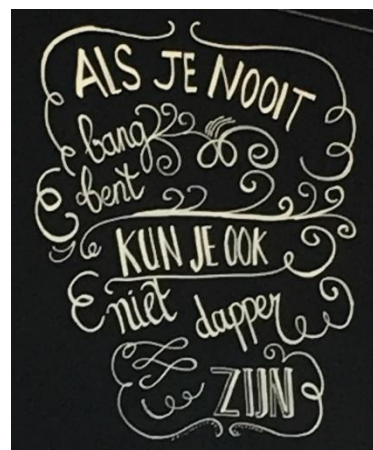 ALS JE NOOIT
bang
bent
KUN JE OOK
niet dapper
ZIJN